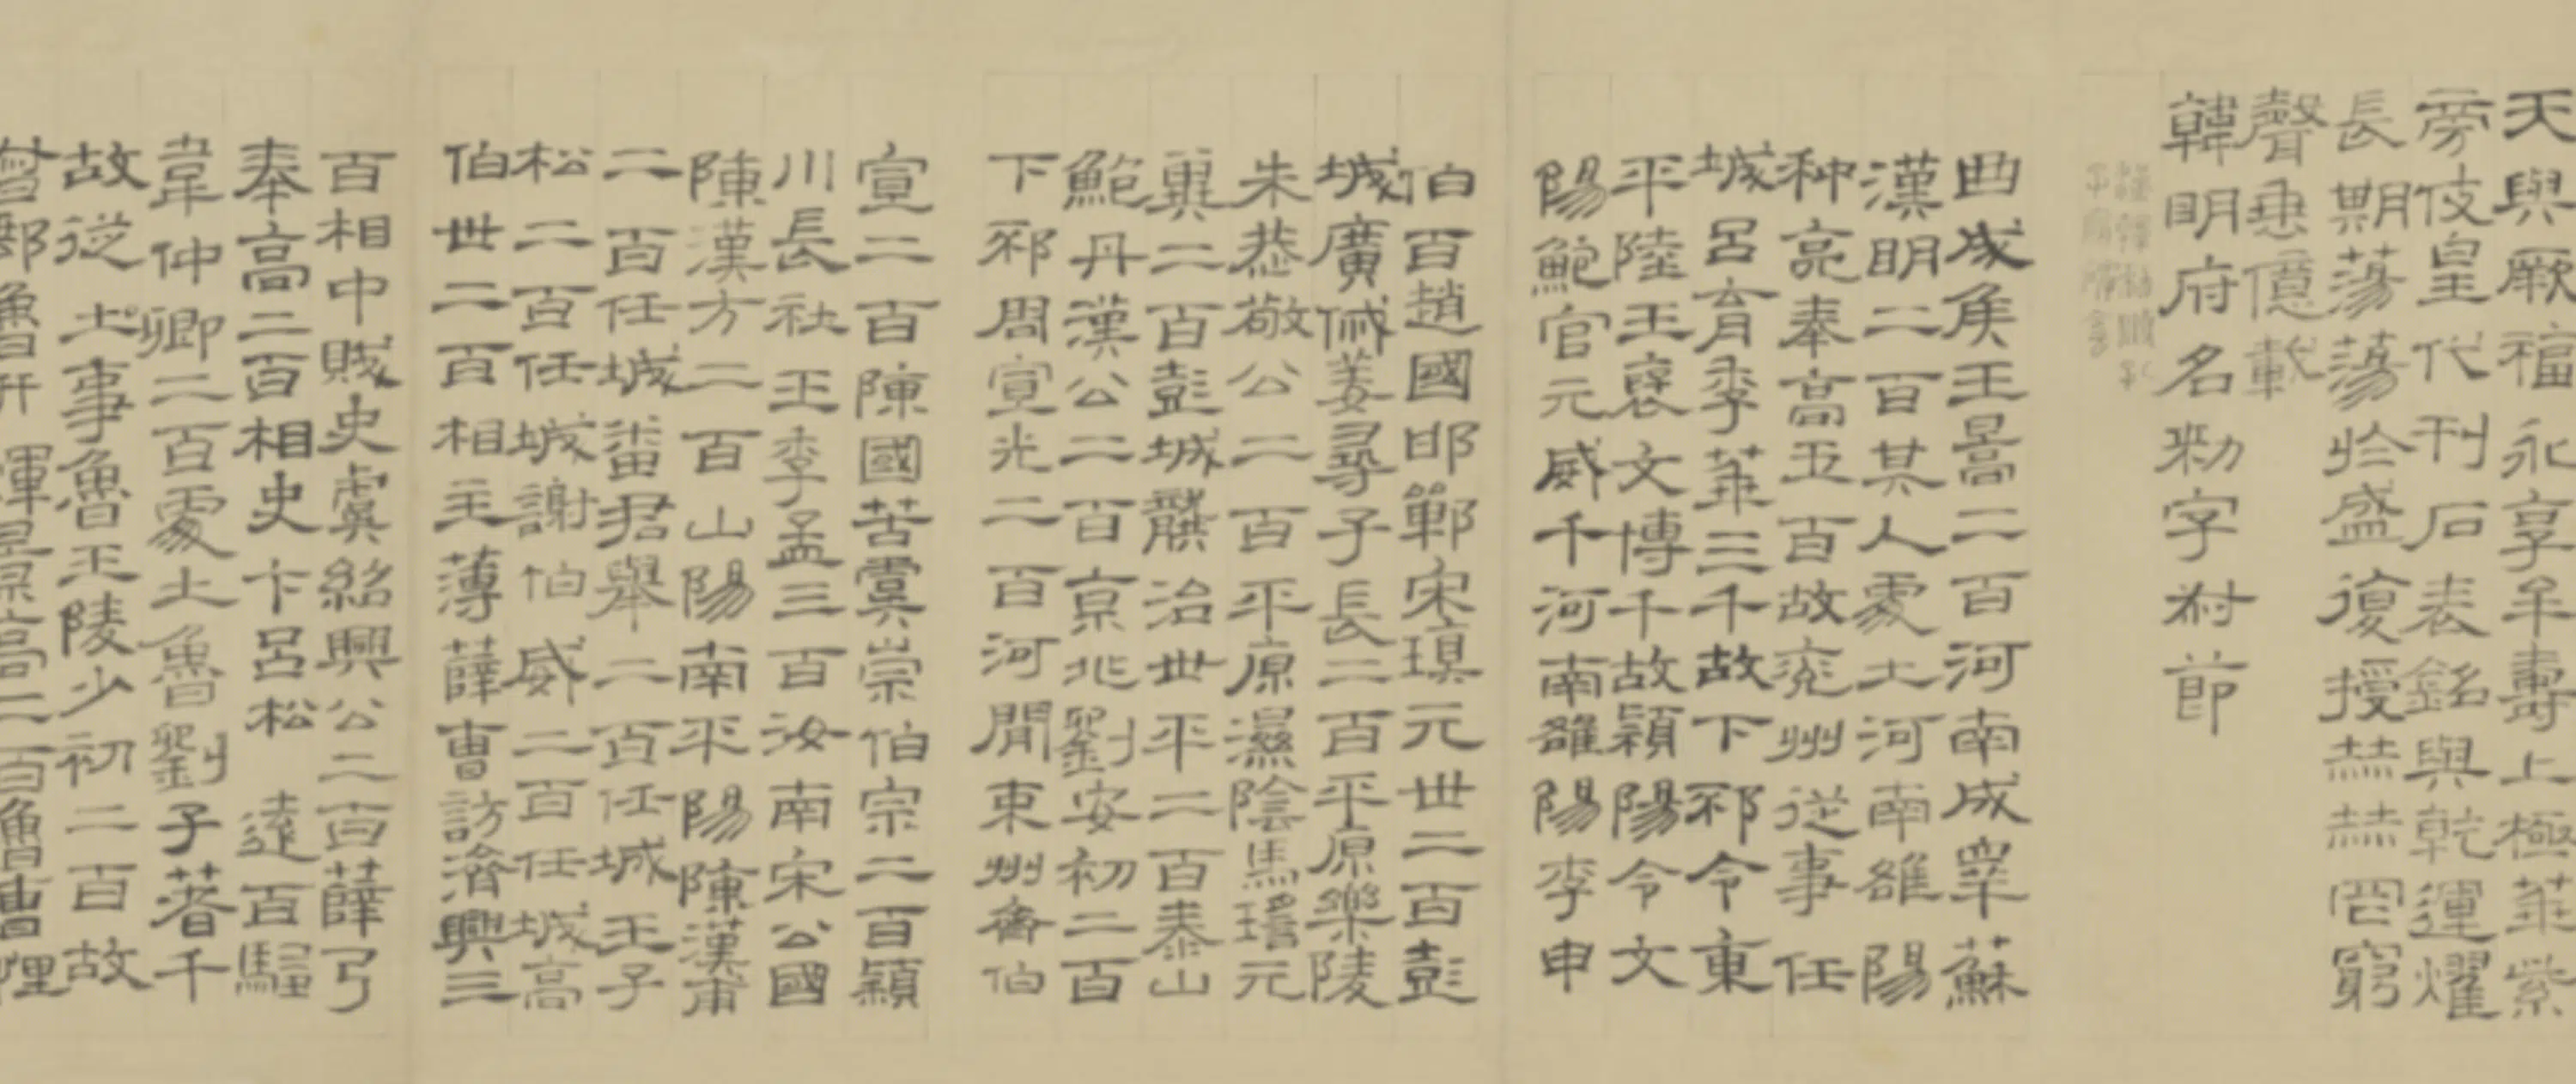 天與厥福永享牟壽上極華紫
旁伎皇代刊石表銘與乾運燿
長期蕩蕩於盛復授赫赫罔窮
聲垂億載
韓明府名勑字叔節
曲成侯王暠二百河南成睪蘇
漢明二百其人處士河南雒陽
种亮奉高五百故兗州從事任
城呂育季華三千故下邳令東
平陸王褒文博千故潁陽令文
陽鮑宮元威千河南雒陽李申
伯百趙國邯鄲宋瑱元世二百彭
城廣戚姜尋子長二百平原樂陵
朱恭敬公二百平原濕陰馬瑶元
冀二百彭城龔治世平二百泰山
鮑丹漢公二百京兆劉安初二百
下邳周宣光二百河間束州齊伯
宣二百陳國苦虞崇伯宗二百潁
川長社王季孟三百汝南宋公國
陳漢方二百山陽南平陽陳漢甫
二百任城番君舉二百任城王子
松二百任城謝伯威二百任城高
伯世二百相主薄薛曹訪濟興三
百相中賊史虞紹興公二百薛弓
奉高二百相史卞呂松 遠百騶
韋仲卿二百處士魯劉子著千
故從士事魯王陵少初二百故
督郵魯开煇景高二百魯曹悝